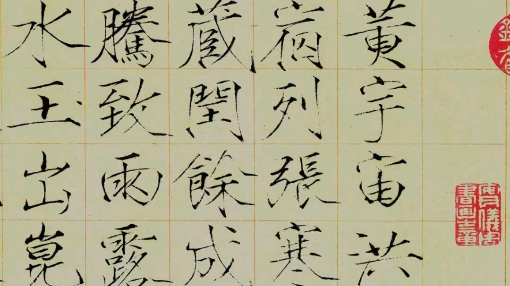 黄宇宙洪
宿列張寒
藏閏餘成
騰致雨露
水玉出崑